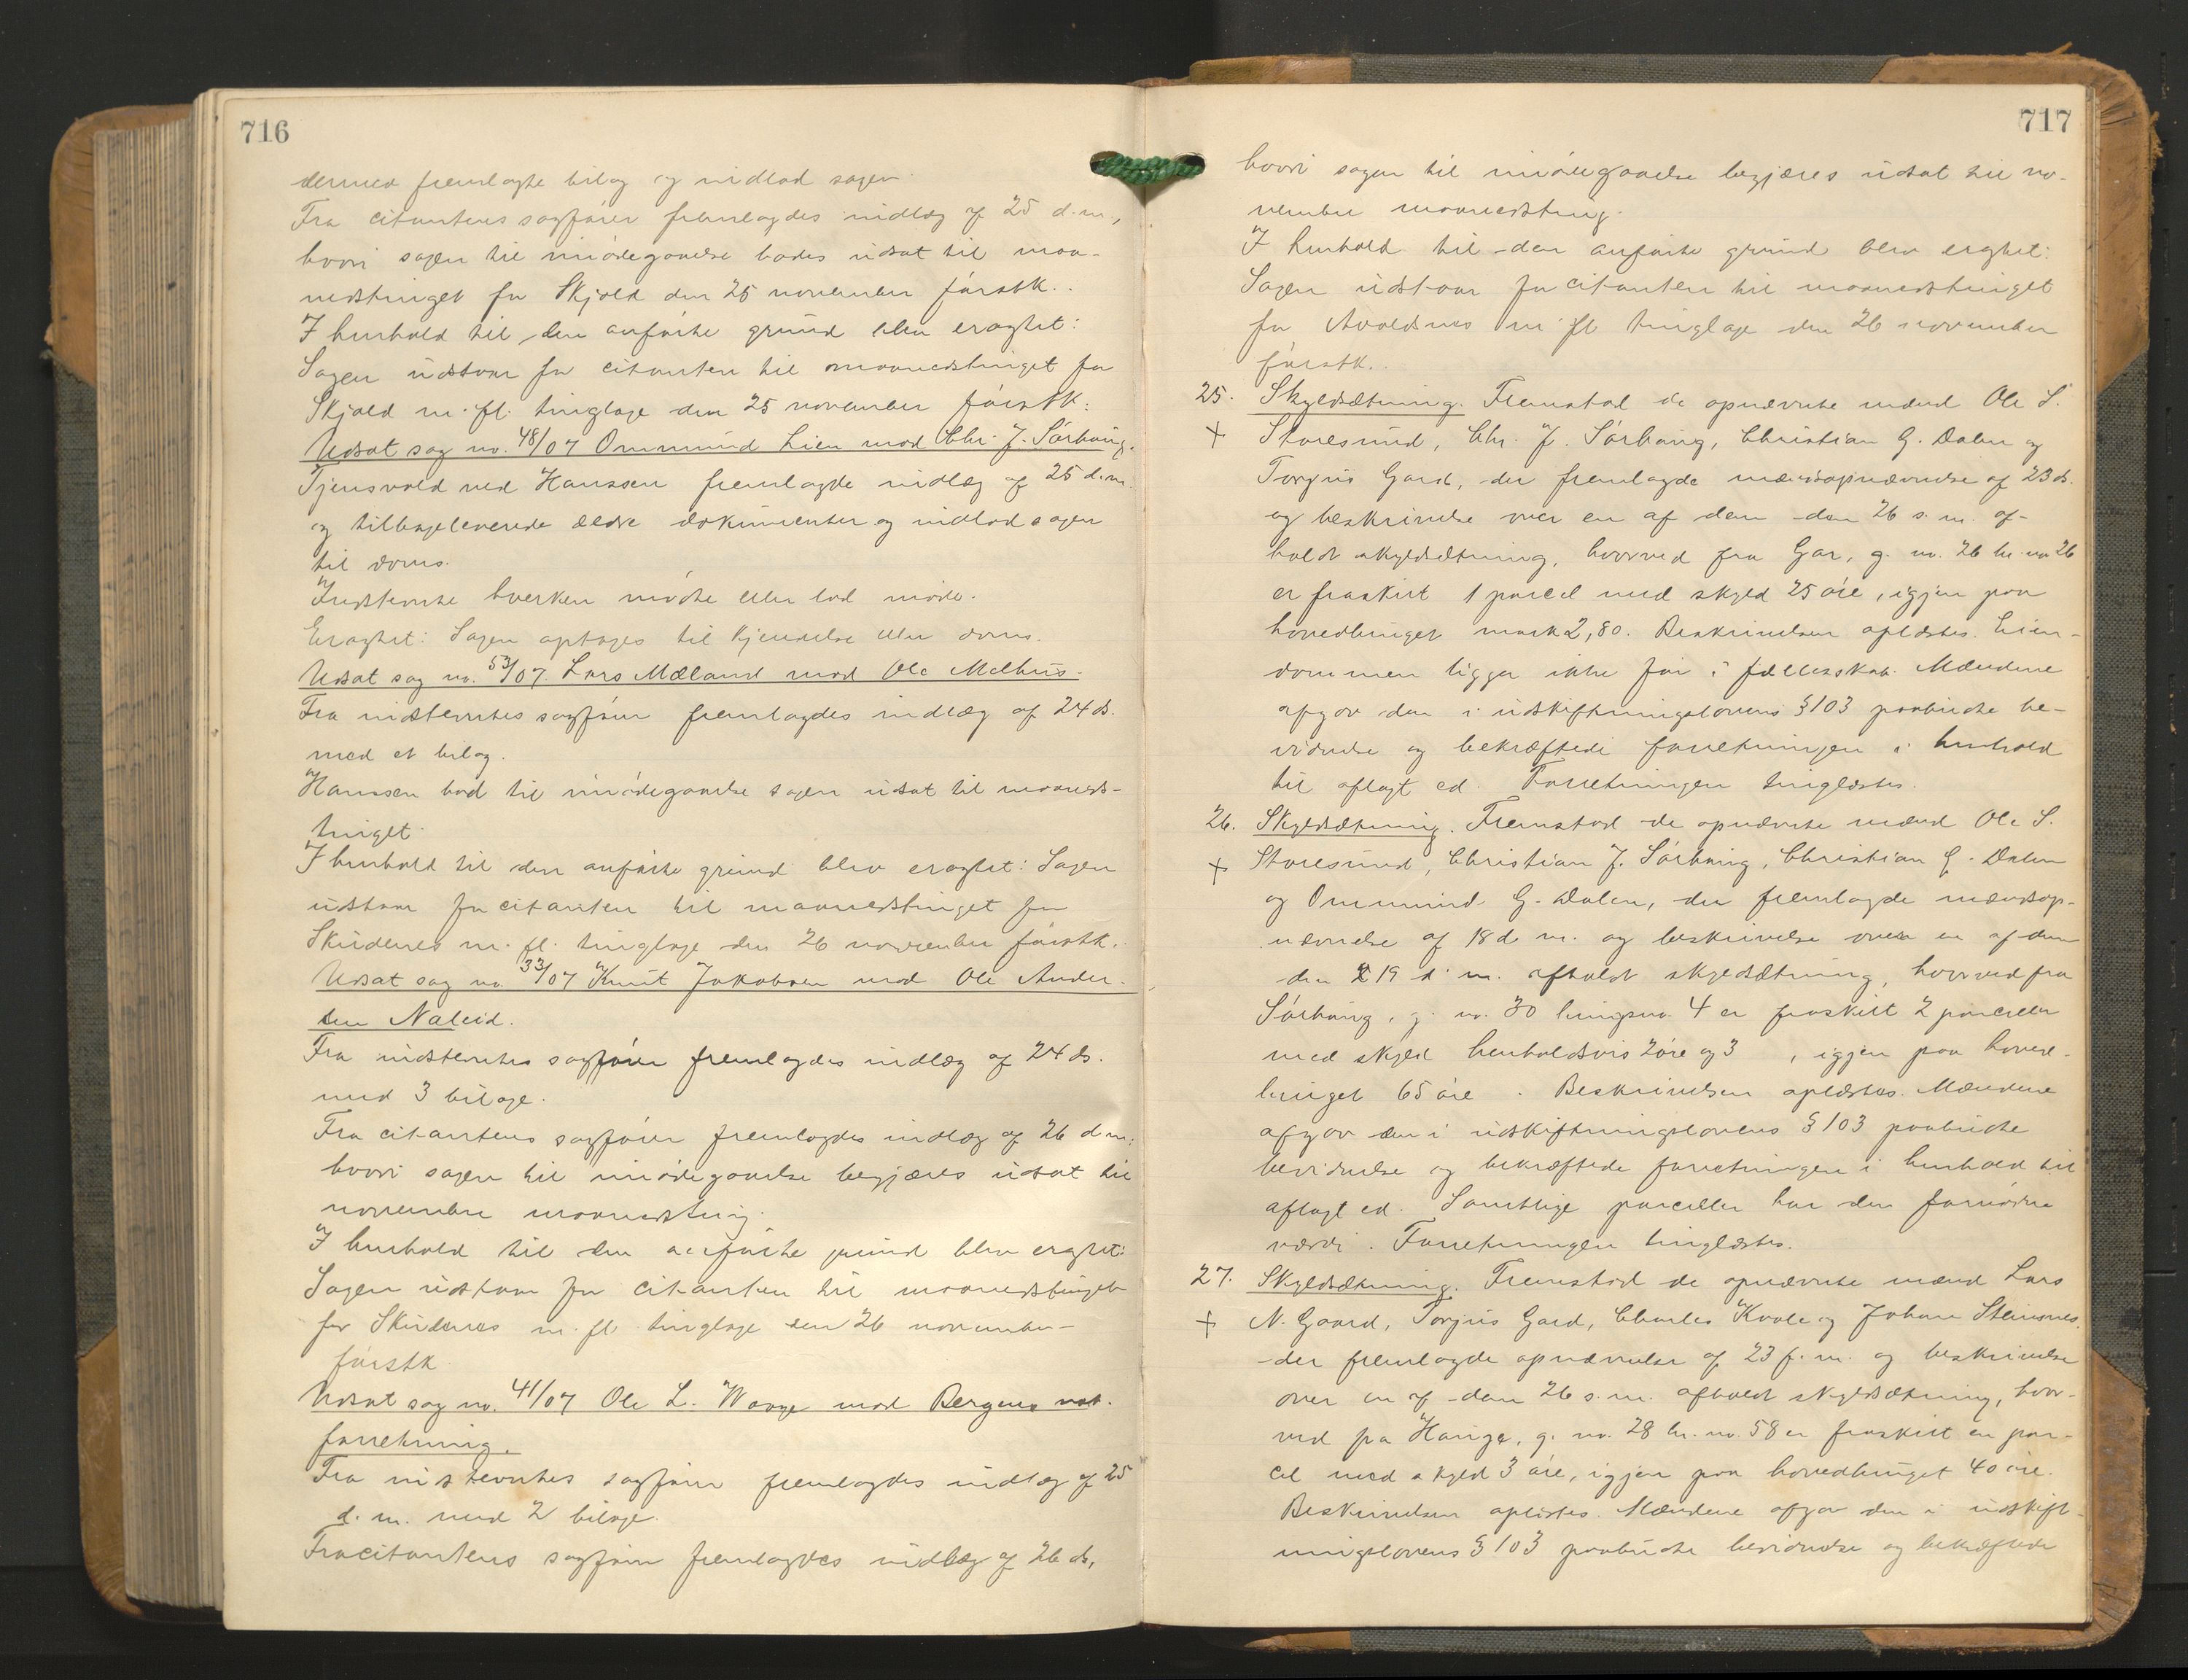 716
dermed fremlagte bilag og indlod sagen.
Fra citantens sagfører fremlagdes indlæg af 25 d.m.,
hvori sagen til imødegaaelse bades udsat til maa-
nedstinget for Skjold den 25 november førstk..
I henhold til den anførte grund blev eragtet:
Sagen udstaar for citanten til maanedstinget for
Skjold m. fl. tinglage den 25 november førstk.:
Udsat sag no. 48/07 Ommund Lien mod Chr. J. Sørhaug.
Tjensvold ved Hanssen fremlagde indlæg af 25 d.m.
og tilbageleverede ældre dokumenter og indlod sagen
til doms.
Indstevnte hverken mødte eller lod møde.
Eragtet: Sagen optages til kjendelse eller doms.
Udsat sag no. 53/07. Lars Mæland mod Ole Melhus.
Fra indstevntes sagfører fremlagdes indlæg af 24 ds.
med et bilag.
Hanssen bad til imødegaaelse sagen udsat til maaneds-
tinget.
I henhold til den anførte grund blev eragtet: Sagen
udstaar for citanten til maanedstinget for
Skudenes m. fl. tinglage den 26 november førstk.
Udsat sag no. 33/07 Knut Jakobsen mod Ole Ander-
sen Naleid.
Fra indstevntes sagfører fremlagdes indlæg af 24 ds.
med 3 bilage.
Fra citantens sagfører fremlagdes indlæg af 26 d.m.
hvori sagen til imødegaaelse begjæres udsat til
november maanedsting.
I henhold til den anførte grund blev eragtet:
Sagen udstaar for citanten til maanedstinget
for Skudenes m. fl. tinglage den 26 november
førstk.
Udsat sag no. 41/07 Ole L. Waage mod Bergens not-
forretning.
Fra indstevntes sagfører fremlagdes indlæg af 25
d. m. med 2 bilage.
Fra citantens sagfører fremlagdes indlæg af 26 ds,
717
hvori sagen til imødegaaelse begjæres udsat til no-
vember maanedsting.
I henhold til den anførte grund blev eragtet:
Sagen udstaar for citanten til maanedstinget
for Avaldsnes m. fl. tinglage den 26 november
førstk..
25. Skyldsætning. Fremstod de opnævnte mænd Ole S.
+ Storesund, Chr. J. Sørhaug, Christian G. Dalen og
Torgius Gard, der fremlagde mændsopnævnelse af 23 ds.
og beskrivelse over en af dem den 26 s. m. af-
holdt skyldsætning, hvorved fra Gar, g. no. 26 br. no 26
er fraskilt 1 parcel med skyld 25 øre, igjen paa
hovedbruget mark 2,80. Beskrivelsen oplæstes. Eien-
dommen ligger ikke før i fællesskab. Mændene
afgav den i udskiftningslovens § 103 paabudte be-
vidnelse og bekræftede forretningen i henhold
til aflagt ed. Forretningen tinglæstes.
26. Skyldsætning. Fremstod de opnævnte mænd Ole S.
+ Storesund, Christian J. Sørhaug, Christian G. Dalen
og Ommund G. Dalen, der fremlagde mændsop-
nævnelse af 18 d. m. og beskrivelse over en af dem
den 19 d. m. afholdt skyldsætning, hvorved fra
Sørhaug, g. no. 30 brugsno. 4 er fraskilt 2 parceller
med skyld henholdsvis 2 øre og 3 , igjen paa hoved-
bruget 65 øre . Beskrivelsen oplæstes. Mændene
afgav den i udskiftningslovens § 103 paabudte
bevidnelse og bekræftede forretningen i henhold til
aflagt ed. Samtlige parceller har den fornødne
værdi. Forretningen tinglæstes.
27. Skyldsætning. Fremstod de opnævnte mænd Lars
+ N. Gaard, Torgius Gard, Charles Kvale og Johan Steinsnes,
der fremlagde opnævnelse af 23 f. m. og beskrivelse
over en af dem 26 s. m. afholdt skyldsætning, hvor-
ved fra Hauge, g. no. 28 br. no. 58 er fraskilt en par-
cel med skyld 3 øre, igjen paa hovedbruget 40 øre.
Beskrivelsen oplæstes. Mændene afgav den i udskift-
ningslovens § 103 paabudte bevidnelse og bekræftede